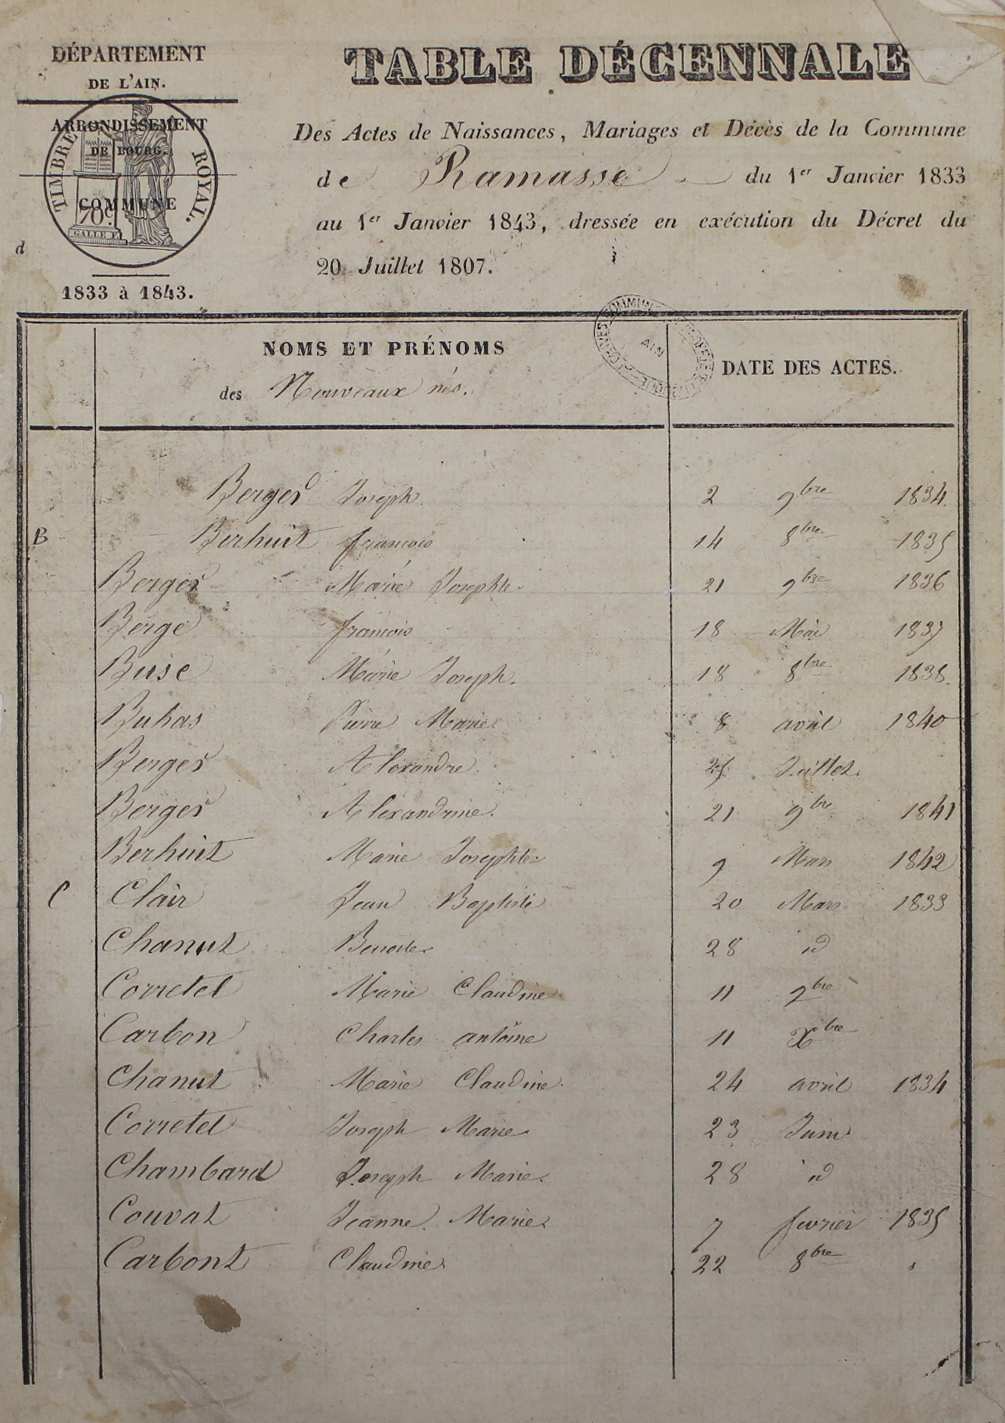 DÉPARTEMENT
DE L'AIN.
ARRONDISSEMENT
DE BOURG.
COMMUNE
d
1833 à 1843.
TIMBRE ROYAL.
70c
TABLE DÉCENNALE
Des Actes de Naissances, Mariages et Décès de la Commune
de Ramasse du 1er Janvier 1833
au 1er Janvier 1843, dressée en exécution du Décret du
20 Juillet 1807.
NOMS ET PRÉNOMS
des Nouveaux nés.
DATE DES ACTES.
Berger Joseph 2 9bre 1834
B Berhuit françois 14 8bre 1835
Berger Marie Josephte 21 9bre 1836
Berge françois 18 Mai 1837
Buise Marie Joseph. 18 8bre 1838
Buhas Pierre Marie 8 avril 1840
Berger Alexandre Juillet.
Berger Alexandrine 21 9bre 1841
Berhuit Marie Josephte 9 Mars 1842
C Clair Jean Baptiste 20 Mars 1833
Chanut Benoite 28 id
Corretel Marie Claudine 11 9bre
Carbon Charles antoine 11 Xbre
Chanut Marie Claudine 24 avril 1834
Corretel Joseph Marie 23 Juin
Chambard Joseph Marie 28 id
Couvat Jeanne Marie 7 fevrier 1835
Carbont Claudine 22 8bre